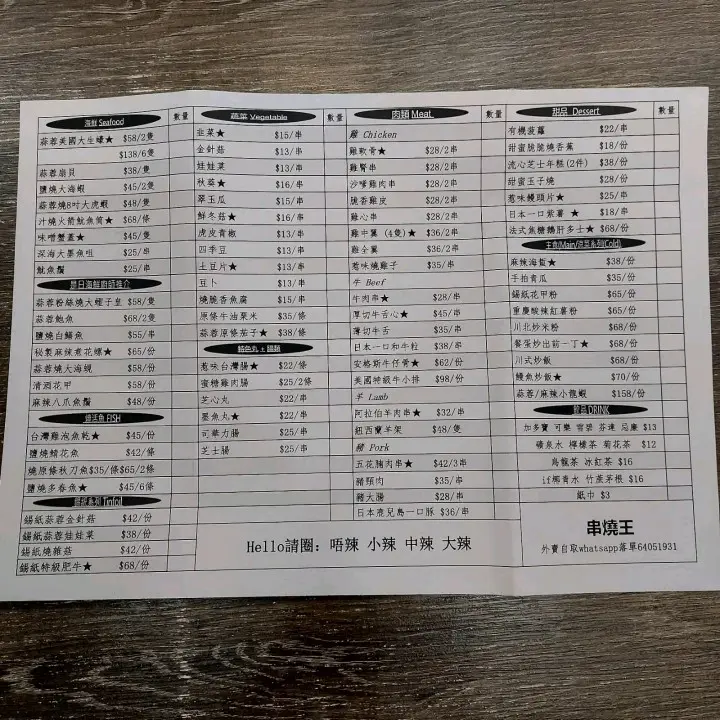 海鮮 Seafood 數量
蒜蓉美國大生蠔★ $58/2隻
$138/6隻
蒜蓉扇貝 $38/隻
鹽燒大海蝦 $45/2隻
蒜蓉燒8吋大虎蝦 $48/隻
汁燒火箭魷魚筒★ $68/條
味噌蟹蓋★ $45/隻
深海大墨魚咀 $25/串
魷魚鬚 $25/串
是日海鮮廚師推介
蒜蓉粉絲燒大蟶子皇 $58/隻
蒜蓉鮑魚 $68/2隻
鹽燒白鱔魚 $55/串
秘製麻辣煮花螺★ $65/份
蒜蓉燒大海蜆 $58/份
清酒花甲 $58/份
麻辣八爪魚鬚 $48/份
FISH
台灣雞泡魚乾★ $45/份
鹽燒鯖花魚 $42/條
燒原條秋刀魚$35/條$65/2條
鹽燒多春魚★ $45/6條
錫紙系列 Tinfoil
錫紙蒜蓉金針菇 $42/份
錫紙蒜蓉娃娃菜 $38/份
錫紙燒雜菇 $42/份
錫紙特級肥牛★ $68/份
蔬菜 Vegetable 數量
韭菜★ $15/串
金針菇 $13/串
娃娃菜 $13/串
秋葵★ $16/串
翠玉瓜 $15/串
鮮冬菇★ $16/串
虎皮青椒 $13/串
四季豆 $13/串
土豆片★ $13/串
豆卜 $13/串
燒脆香魚腐 $15/串
原條牛油粟米 $35/條
蒜蓉原條茄子★ $38/條
特色丸 腸類
惹味台灣腸★ $22/條
蜜糖雞肉腸 $25/2條
芝心丸 $22/串
墨魚丸★ $22/串
可華力腸 $25/串
芝士腸 $25/串
肉類 Meat 數量
雞 Chicken
雞軟骨★ $28/2串
雞腎串 $28/2串
沙嗲雞肉串 $28/2串
脆香雞皮 $28/2串
雞心串 $28/2串
雞中翼 (4隻)★ $36/2串
雞全翼 $36/2串
惹味燒雞子 $35/串
牛 Beef
牛肉串★ $28/串
厚切牛舌心★ $45/串
薄切牛舌 $35/串
日本一口和牛粒 $38/串
安格斯牛仔骨★ $62/份
美國特級牛小排 $98/份
羊 Lamb
阿拉伯羊肉串★ $32/串
紐西蘭羊架 $48/隻
豬 Pork
五花腩肉串★ $42/3串
豬頸肉 $35/串
豬大腸 $28/串
日本鹿兒島一口豚 $36/串
甜品 Dessert 數量
有機菠蘿 $22/串
甜蜜脆脆燒香蕉 $18/份
流心芝士年糕(2件) $38/份
甜蜜玉子燒 $28/份
惹味饅頭片★ $25/串
日本一口紫薯 ★ $18/串
法式焦糖鵝肝多士★ $68/份
主食(Main/涼菜系列(Cold)
麻辣海蜇★ $38/份
手拍青瓜 $35/份
錫紙花甲粉 $65/份
重慶酸辣紅薯粉 $65/份
川北炒米粉 $68/份
餐蛋炒出前一丁★ $68/份
川式炒飯 $68/份
鰻魚炒飯★ $70/份
蒜蓉/麻辣小龍蝦 $158/份
飲品 DRINK
加多寶 可樂 雪碧 芬達 忌廉 $13
礦泉水 檸檬茶 菊花茶 $12
烏龍茶 冰紅茶 $16
椰青水 竹蔗茅根 $16
紙巾 $3
Hello請圈：唔辣 小辣 中辣 大辣
串燒王
外賣自取whatsapp落單64051931